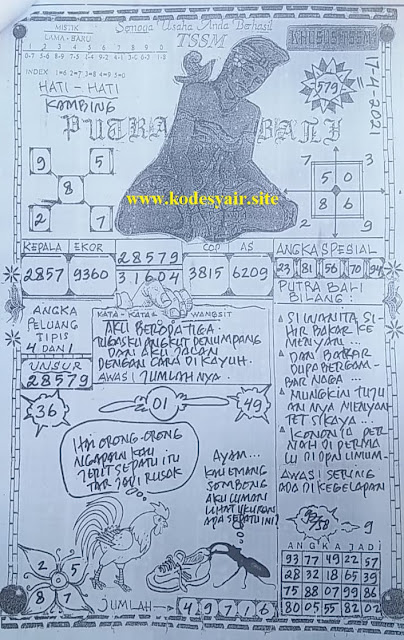 MISTIK
LAMA - BARU
1 2 3 4 5 6 7 8 9 0
0-7 5-6 8-9 7-5 1-4 9-2 4-1 3-0 6-3 2-8
INDEX 1=6 2=7 3=8 4=9 5=0
Semoga Usaha Anda Berhasil
TSSM
KHUSUS TSSM
579
17-4-2021
HATI - HATI
KAMBING
PUTRA BALI
www.kodesyair.site
9 5
8
2 7
7 3
5 0
8 6
2 9
KEPALA EKOR
2857 9360
28579
31604
COP AS
3815 6209
ANGKA SPESIAL
23 81 56 70 94
ANGKA
PELUANG
TIPIS
4 DAN 1
UNSUR
28579
KATA - KATA WANGSIT
AKU BERODA TIGA
TUGASKU ANGKUT PENUMPANG
DAN AKU JALAN
DENGAN CARA DI KAYUH.
AWAS JUMLAH NYA.
PUTRA BALI
BILANG :
SI WANITA SI-
HIR BAKAR KE
MENYAN...
DAN BAKAR
DUPA BERGAM-
BAR NAGA...
MUNGKIN TUJU
AN NYA MENYAN
TET SI KAYA...
KONON IA PER
NAH DI PERMA
LU DI DPN UMUM.
AWAS SERING
ADA DI KEGELAPAN
36 01 49
HAI ORONG-ORONG
NGAPAIN KAU
JEPIT SEPATU ITU
TAR JADI RUSAK
AYAM...
KAU EMANG
SOMBONG
AKU CUMAN
LIHAT UKURAN
ADA SEPATU INI?
9
2 5
8 7
JUMLAH → 4 9 7 1 6
ANGKA JADI
93 77 49 22 57
28 32 18 65 39
75 88 07 99 86
80 05 55 82 02